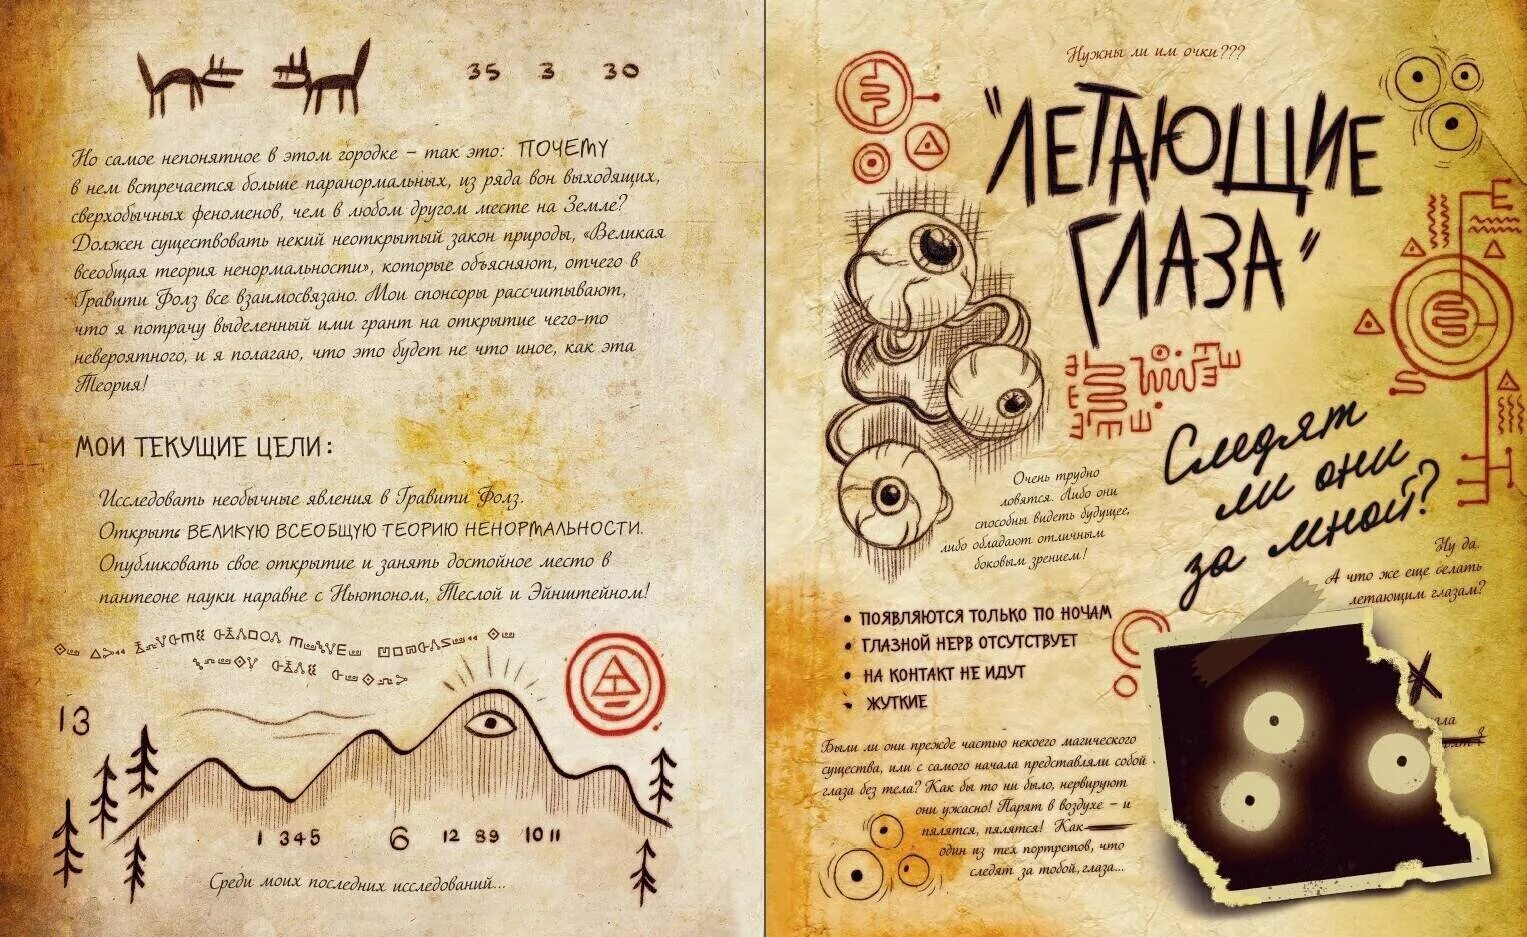 35 3 30
Но самое непонятное в этом городке – так это: ПОЧЕМУ
в нем встречается больше паранормальных, из ряда вон выходящих,
сверхобычных феноменов, чем в любом другом месте на Земле?
Должен существовать некий неоткрытый закон природы, «Великая
всеобщая теория ненормальности», которые объясняют, отчего в
Гравити Фолз все взаимосвязано. Мои спонсоры рассчитывают,
что я потрачу выделенный ими грант на открытие чего-то
невероятного, и я полагаю, что это будет не что иное, как эта
Теория!
МОИ ТЕКУЩИЕ ЦЕЛИ:
Исследовать необычные явления в Гравити Фолз.
Открыть ВЕЛИКУЮ ВСЕОБЩУЮ ТЕОРИЮ НЕНОРМАЛЬНОСТИ.
Опубликовать свое открытие и занять достойное место в
пантеоне науки наравне с Ньютоном, Теслой и Эйнштейном!
13
1 345 6 12 89 10 11
Среди моих последних исследований...
Нужны ли им очки???
"ЛЕТАЮЩИЕ
ГЛАЗА"
Следят
ли они
за мной?
Очень трудно
ловятся. Либо они
способны видеть будущее,
либо обладают отличным
боковым зрением!
Ну да.
А что же еще делать
летающим глазам?
• ПОЯВЛЯЮТСЯ ТОЛЬКО ПО НОЧАМ
• ГЛАЗНОЙ НЕРВ ОТСУТСТВУЕТ
• НА КОНТАКТ НЕ ИДУТ
• ЖУТКИЕ
Были ли они прежде частью некоего магического
существа, или с самого начала представляли собой
глаза без тела? Как бы то ни было, нервируют
они ужасно! Парят в воздухе – и
пялятся, пялятся! Как
один из тех портретов, что
следят за тобой, глаза...